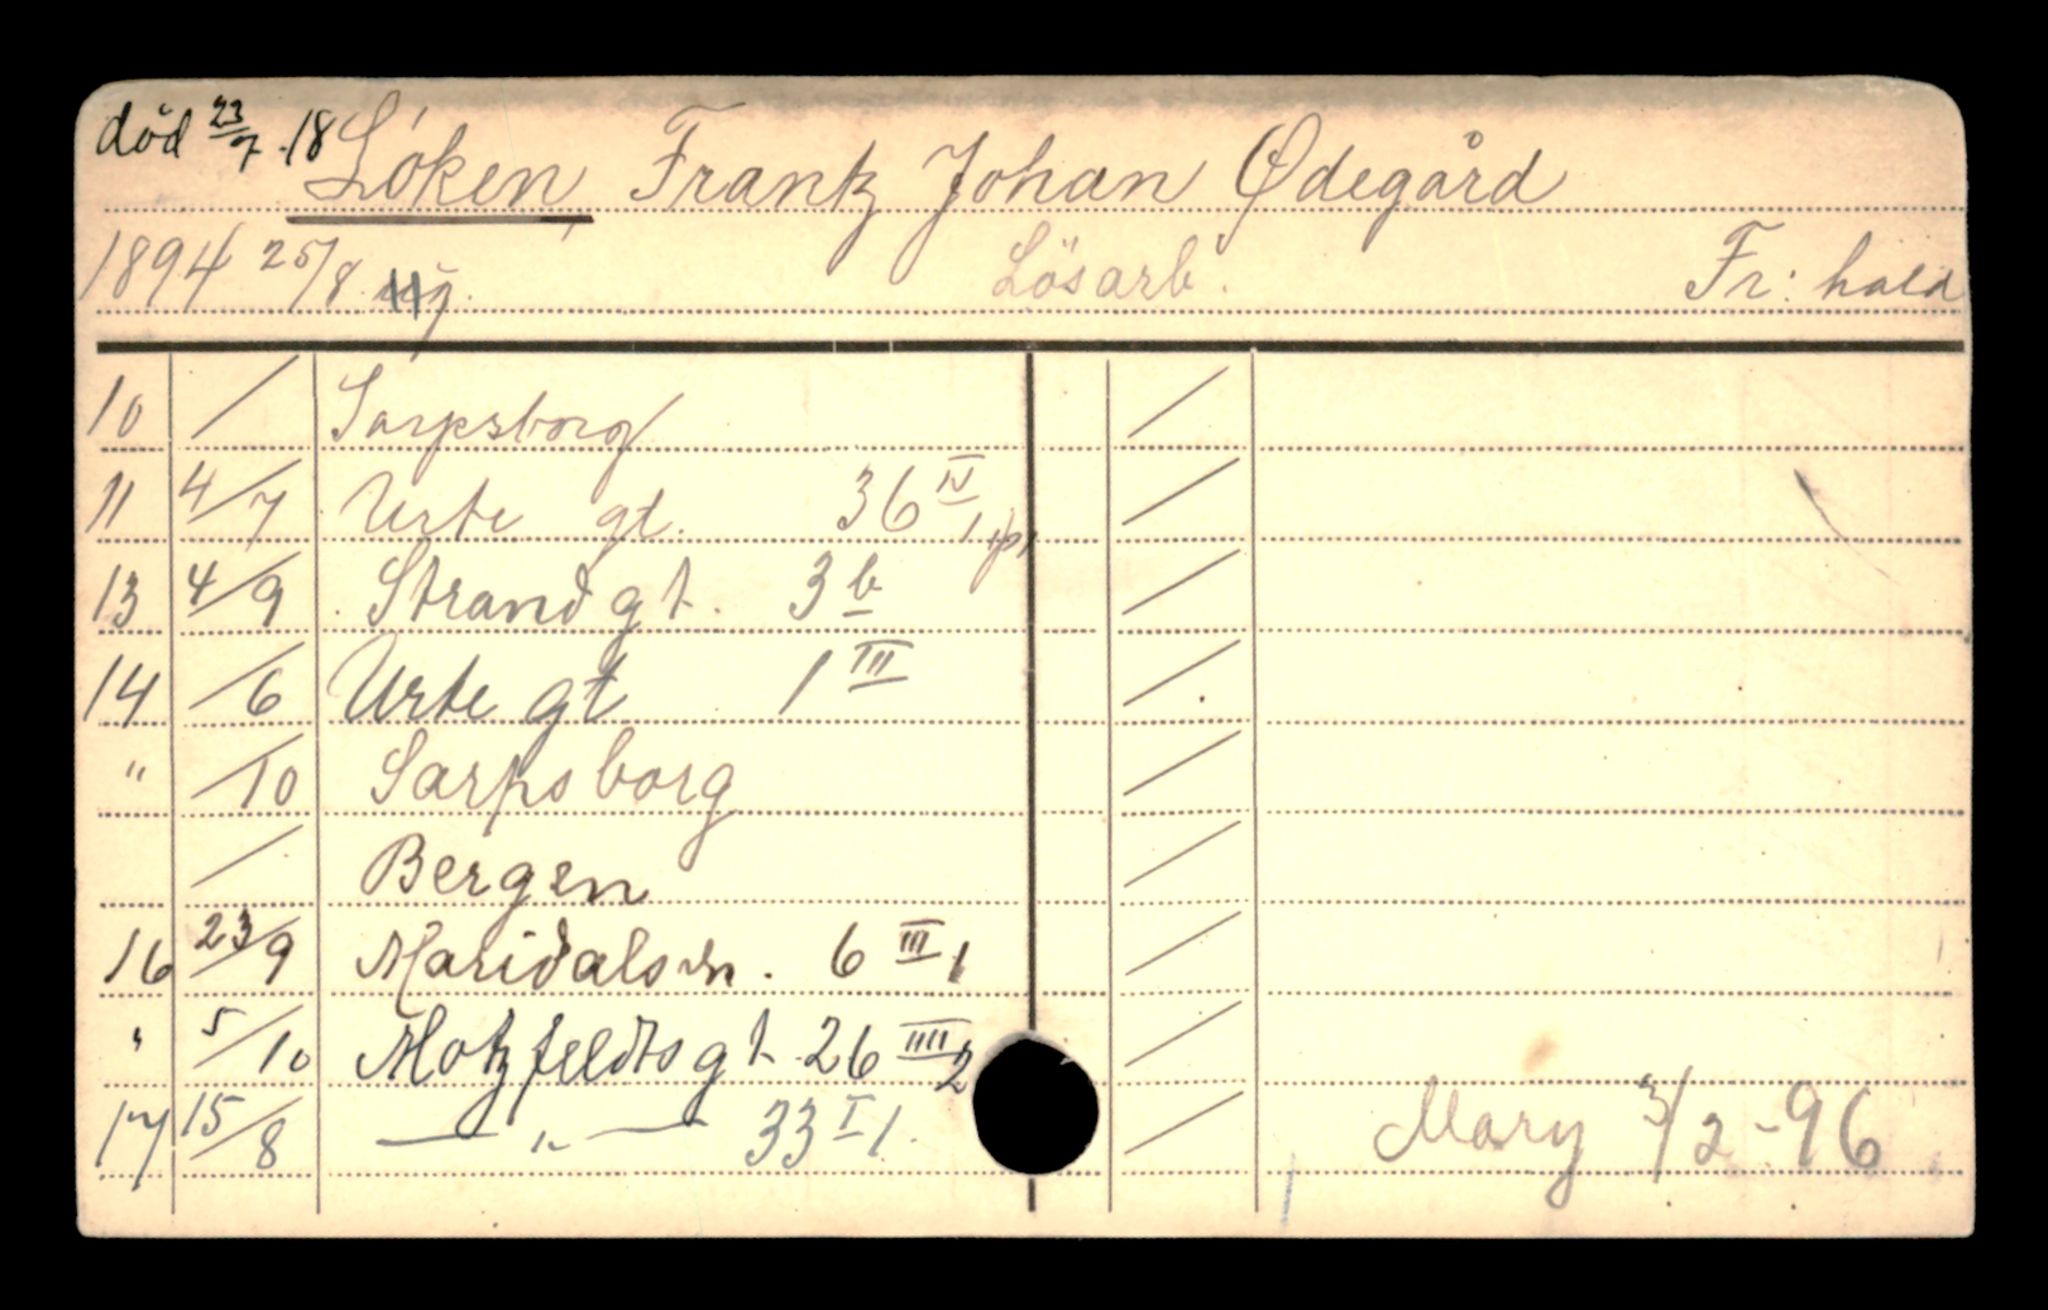 död 23/7 .18 Löken, Frantz Johan Ødegård
1894 25/8 ug. Lösarb. Fr: hald
10 / Sarpsborg /
11 4/7 Urte gt. 36 IV /
13 4/9 Strandgt. 3 b /
14 /6 Urte gt 1 III /
" /10 Sarpsborg /
/ Bergen /
16 23/9 Maridalsvn. 6 III 1 /
" 5/10 Motzfeldtsgt. 26 IIII 2 /
17 15/8 — " — 33 I 1. / Mary 3/2-96